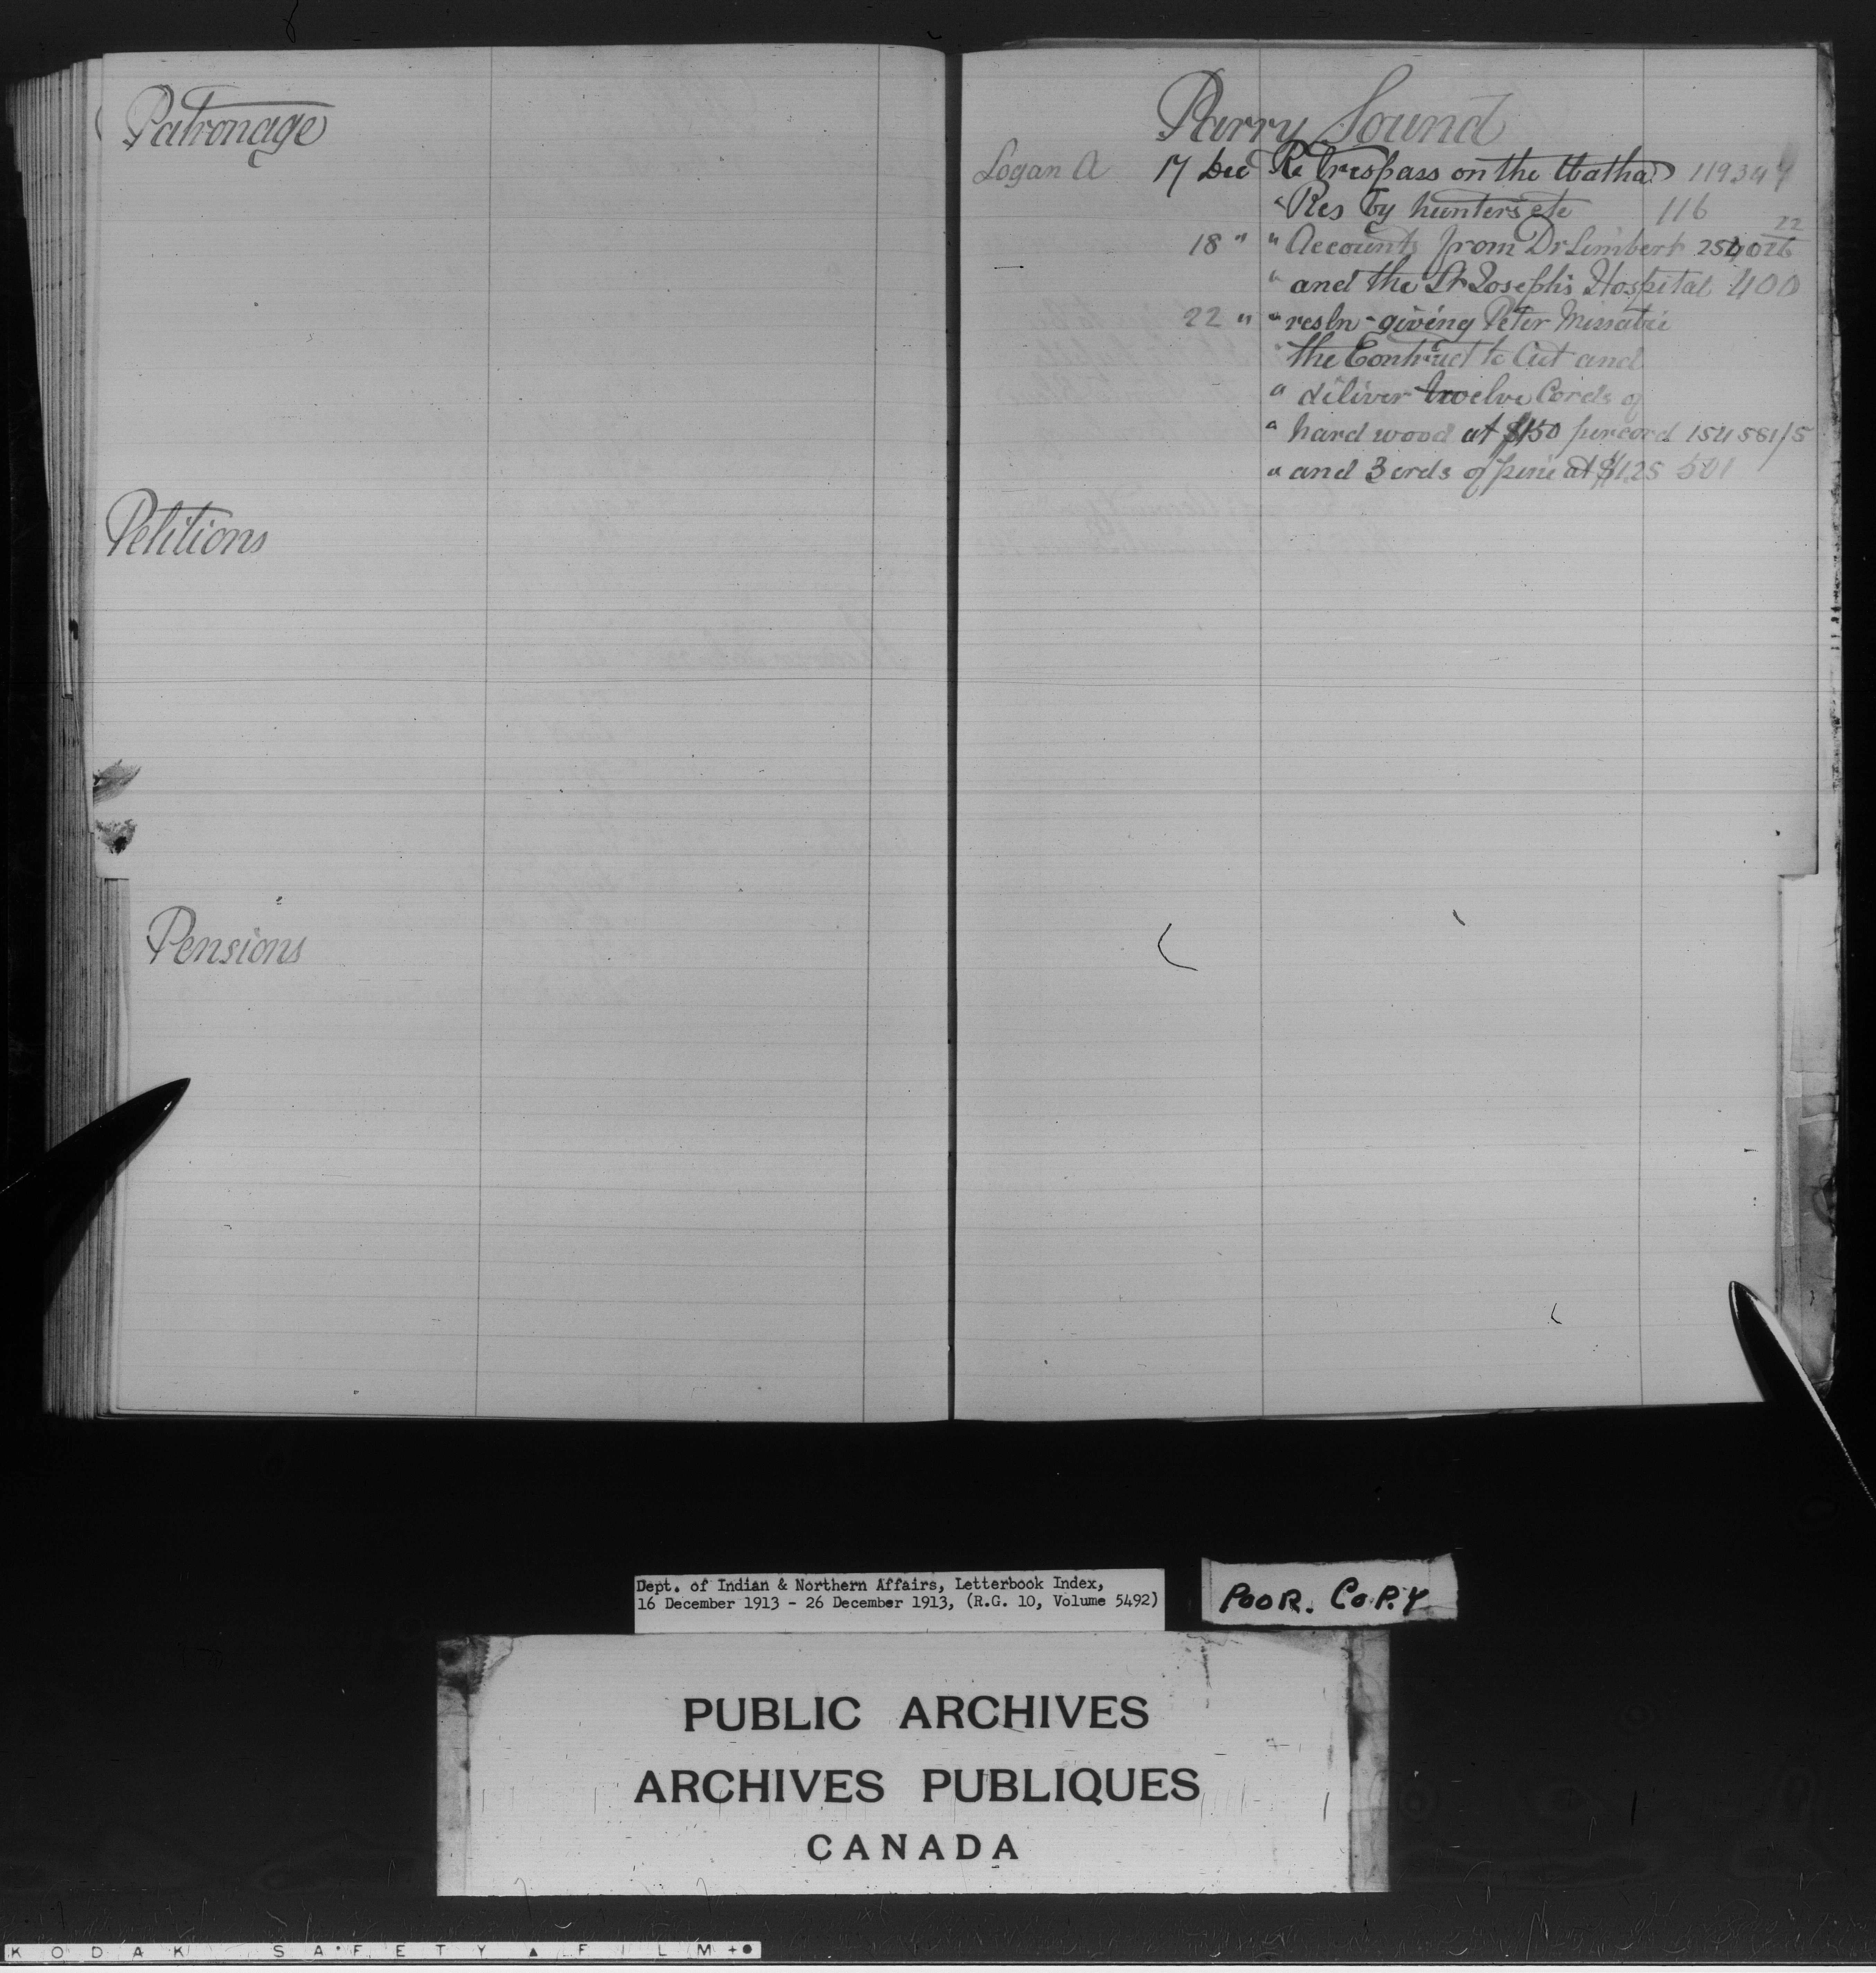 Patronage
Petitions
Pensions
Parry Sound
Logan A 17 Dec Re Trespass on the Watha 119347
" Res by hunters etc 116
18 " " Accounts from Dr Limbert 254026 22
" and the St Joseph's Hospital 400
22 " " resln - giving Peter
" the Contract to Cut and
" deliver twelve Cords of
" hard wood at $150 per cord 154581/5
" and 3 crds of pine at $1.25 501
Dept. of Indian & Northern Affairs, Letterbook Index,
16 December 1913 - 26 December 1913, (R.G. 10, Volume 5492)
POOR. COPY
PUBLIC ARCHIVES
ARCHIVES PUBLIQUES
CANADA
KODAK SAFETY ▲ FILM +●